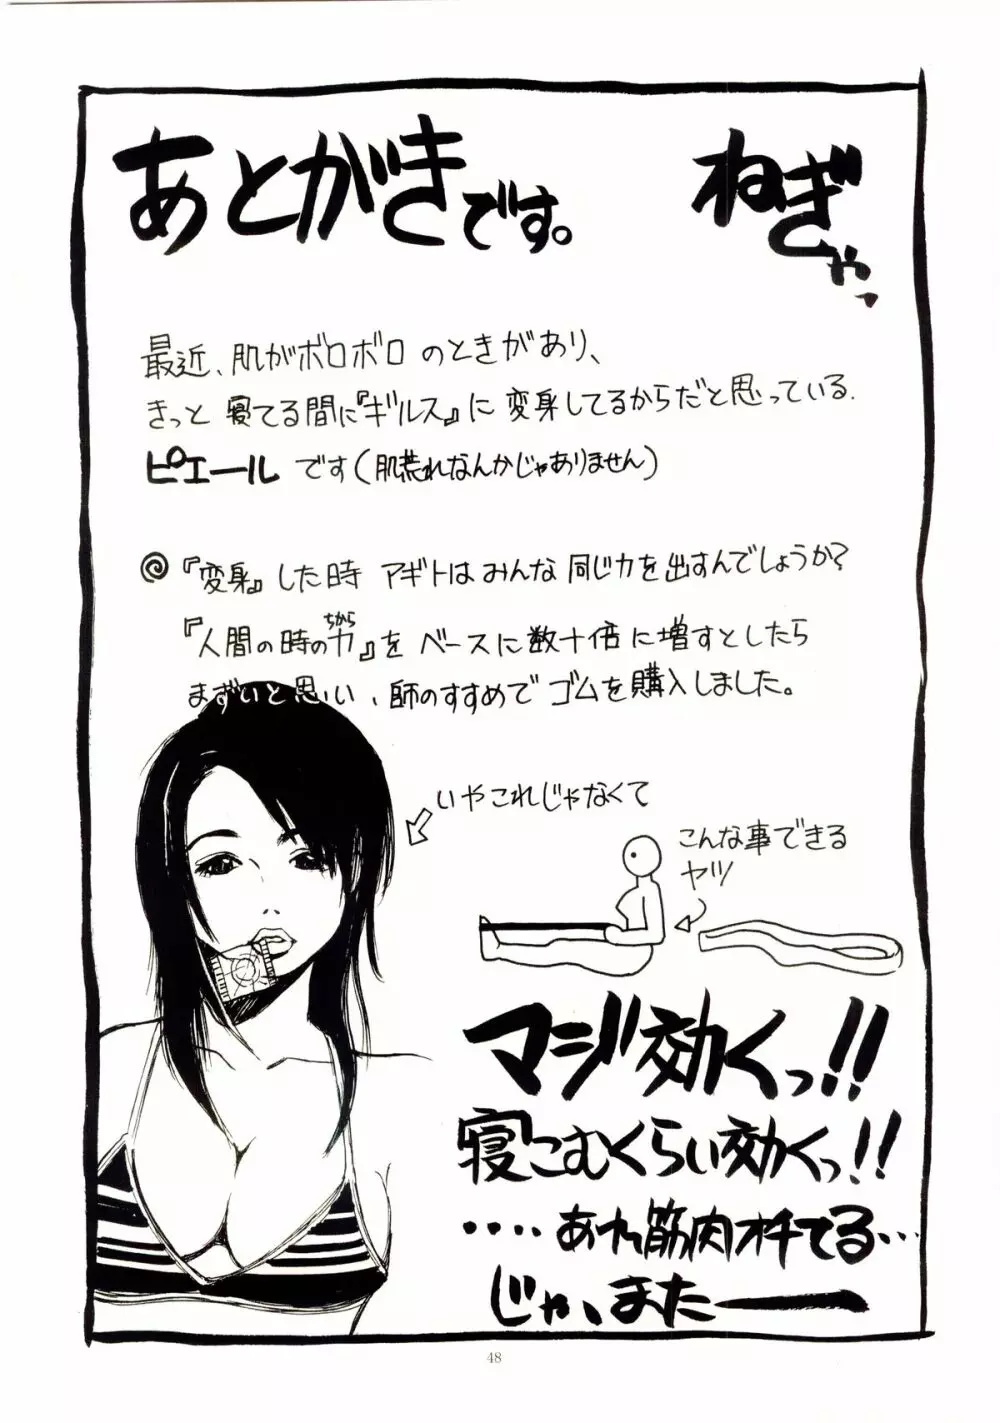 あとがきです。
ねぎゃっ
最近、肌がボロボロのときがあり、
きっと寝てる間に『ギルス』に変身してるからだと思っている.
ピエールです(肌荒れなんかじゃありません)
『変身』した時 アギトはみんな同じ力を出すんでしょうか?
『人間の時の力』をベースに数十倍に増すとしたら
ちから
まずいと思い、師のすすめでゴムを購入しました。
いやこれじゃなくて
こんな事できる
ヤツ
マジ効くっ!!
寝こむくらい効くっ!!
‥‥あれ筋肉オチてる…
じゃ、またー
48